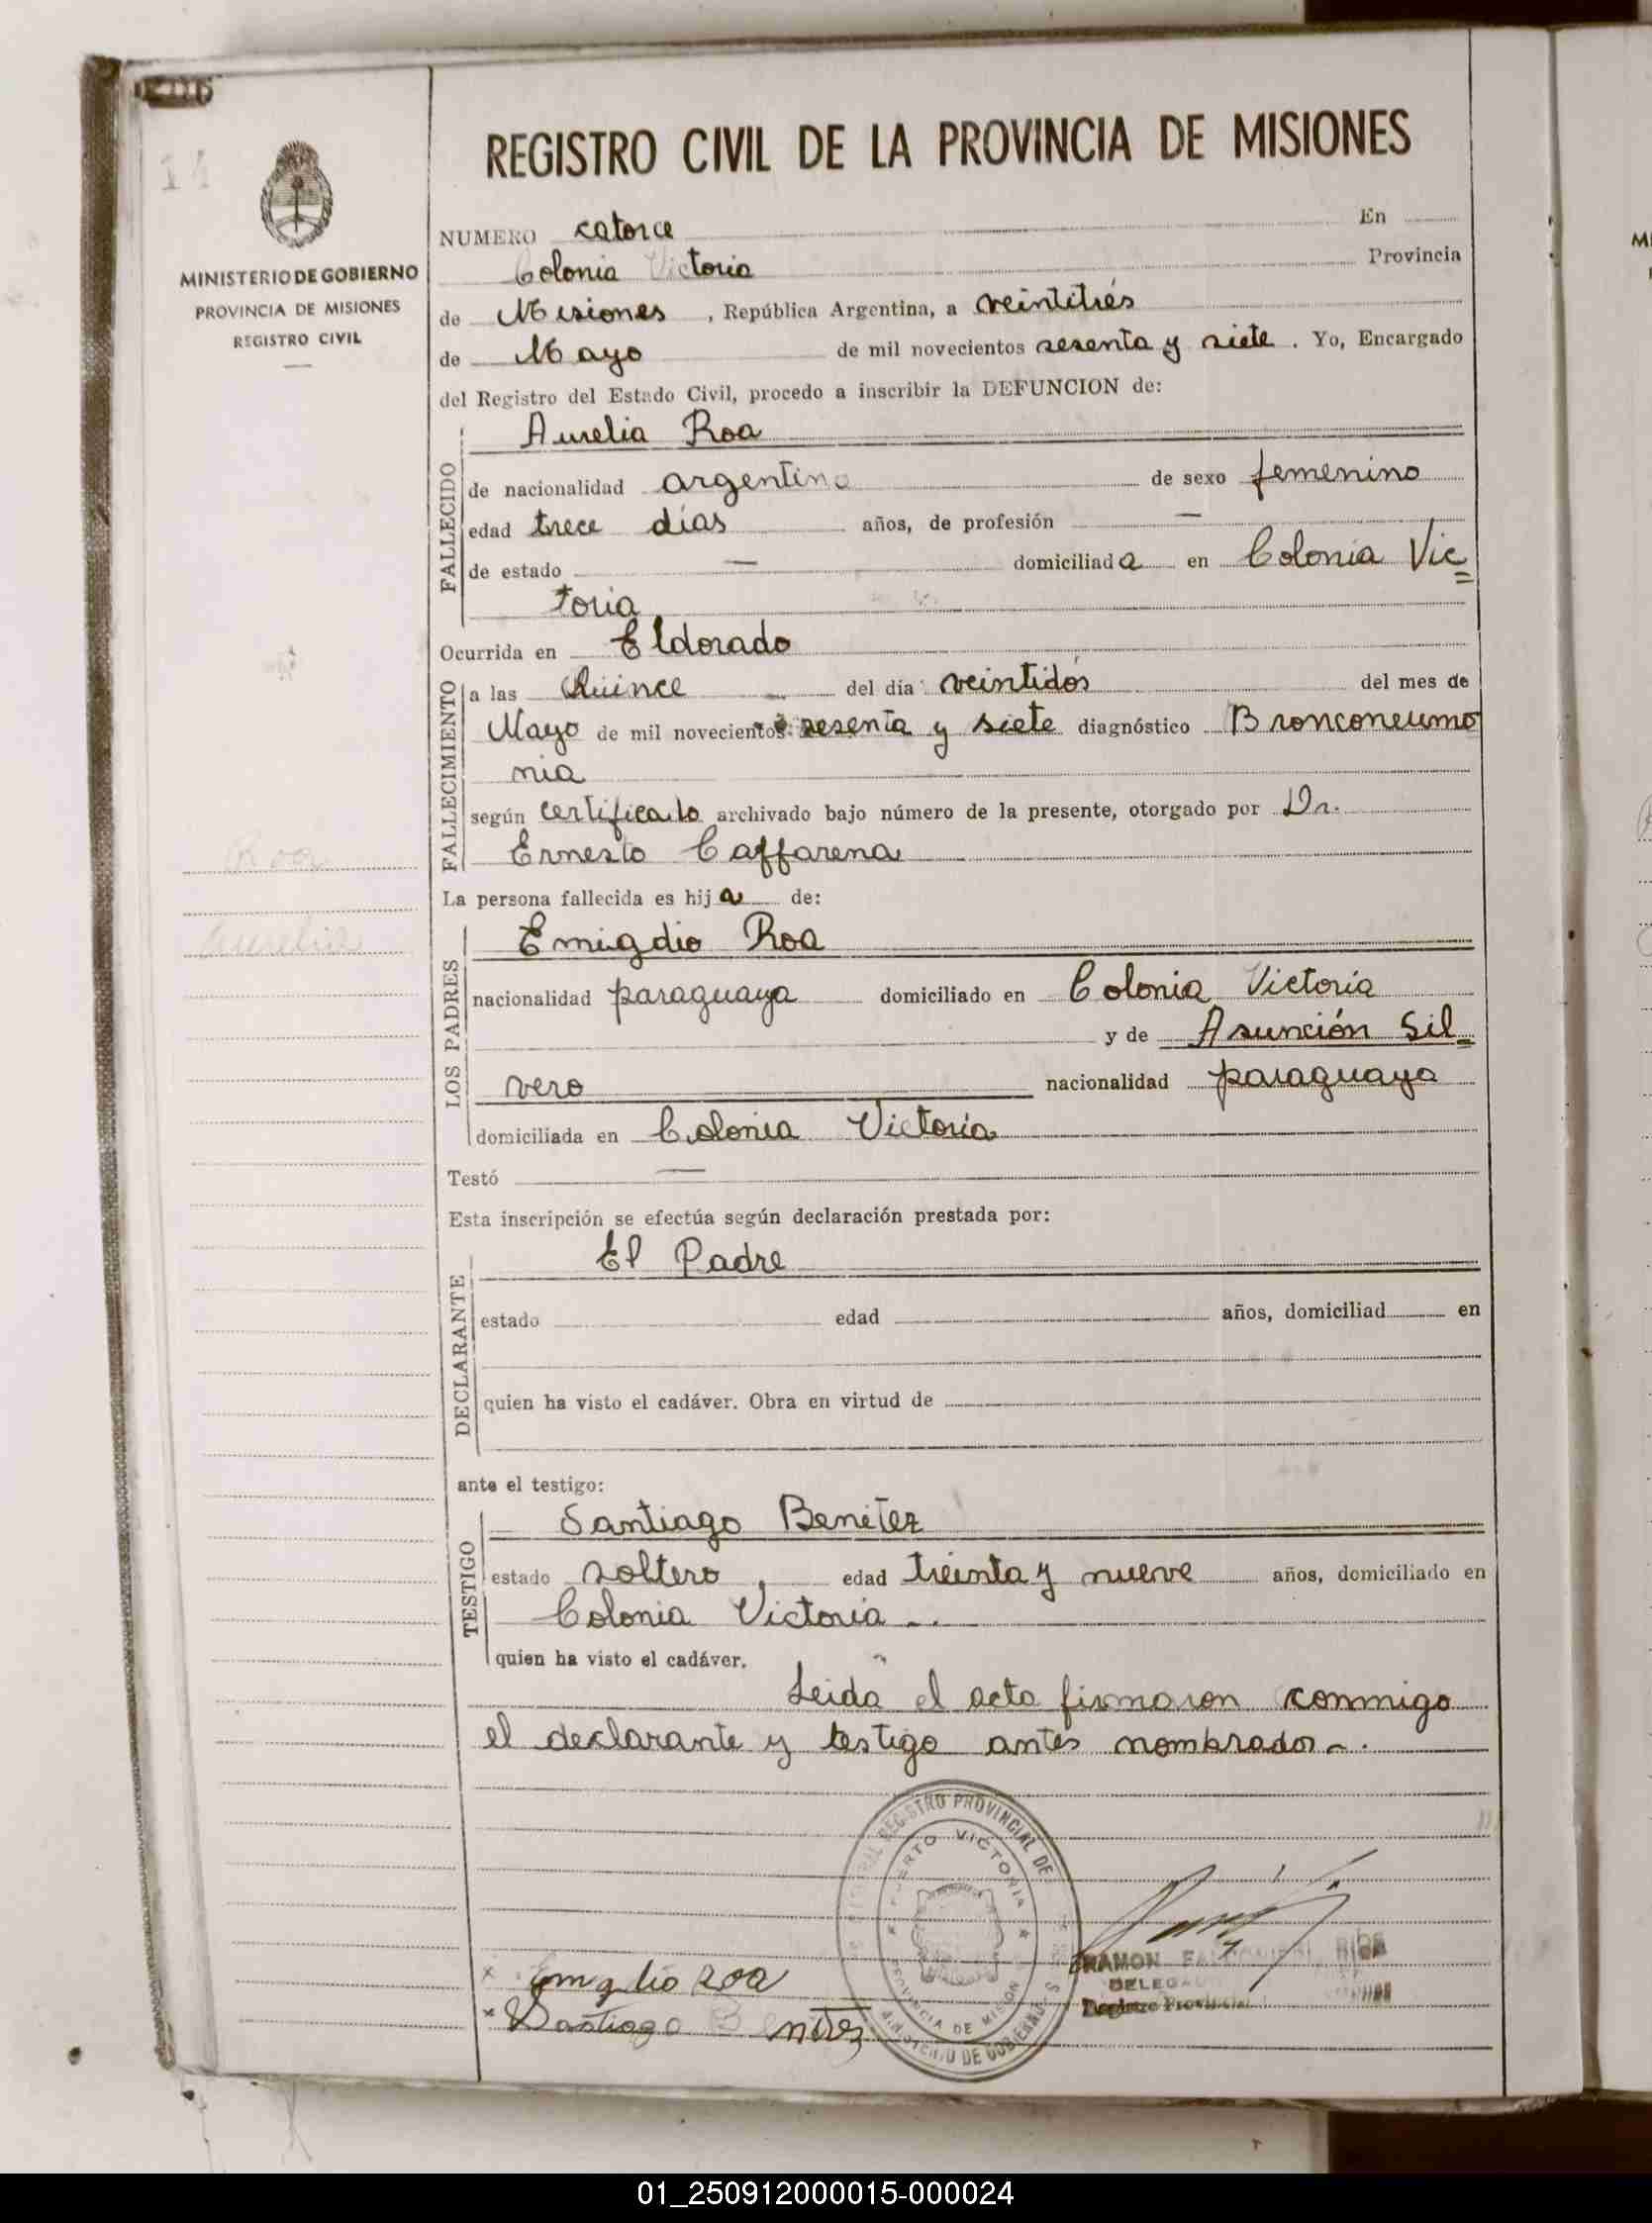 14
MINISTERIO DE GOBIERNO
PROVINCIA DE MISIONES
REGISTRO CIVIL
Roa
Aurelia
REGISTRO CIVIL DE LA PROVINCIA DE MISIONES
NUMERO catorce En
Colonia Victoria Provincia
de Misiones, República Argentina, a veintitrés
de Mayo de mil novecientos sesenta y siete. Yo, Encargado
del Registro del Estado Civil, procedo a inscribir la DEFUNCION de:
FALLECIDO
Aurelia Roa
de nacionalidad argentina de sexo femenino
edad trece días años, de profesión —
de estado — domiciliada en Colonia Vic=
toria
Ocurrida en Eldorado
FALLECIMIENTO
a las Quince del día veintidós del mes de
Mayo de mil novecientos sesenta y siete diagnóstico Bronconeumo
nia
según certificado archivado bajo número de la presente, otorgado por Dr.
Ernesto Caffarena
La persona fallecida es hija de:
LOS PADRES
Emigdio Roa
nacionalidad paraguaya domiciliado en Colonia Victoria
y de Asunción Sil=
vero nacionalidad paraguaya
domiciliada en Colonia Victoria
Testó —
Esta inscripción se efectúa según declaración prestada por:
DECLARANTE
El Padre
estado edad años, domiciliad en
quien ha visto el cadáver. Obra en virtud de
ante el testigo:
TESTIGO
Santiago Benítez
estado soltero, edad treinta y nueve años, domiciliado en
Colonia Victoria
quien ha visto el cadáver.
Leida el acta firmaron conmigo
el declarante y testigo antes nombrados.
REGISTRO PROVINCIAL DE
PUERTO VICTORIA
PROVINCIA DE MISIONES
MINISTERIO DE GOBIERNO
x Emigdio Roa
x Santiago Benítez
RAMON
DELEGADO
Registro Provincial
01_250912000015-000024